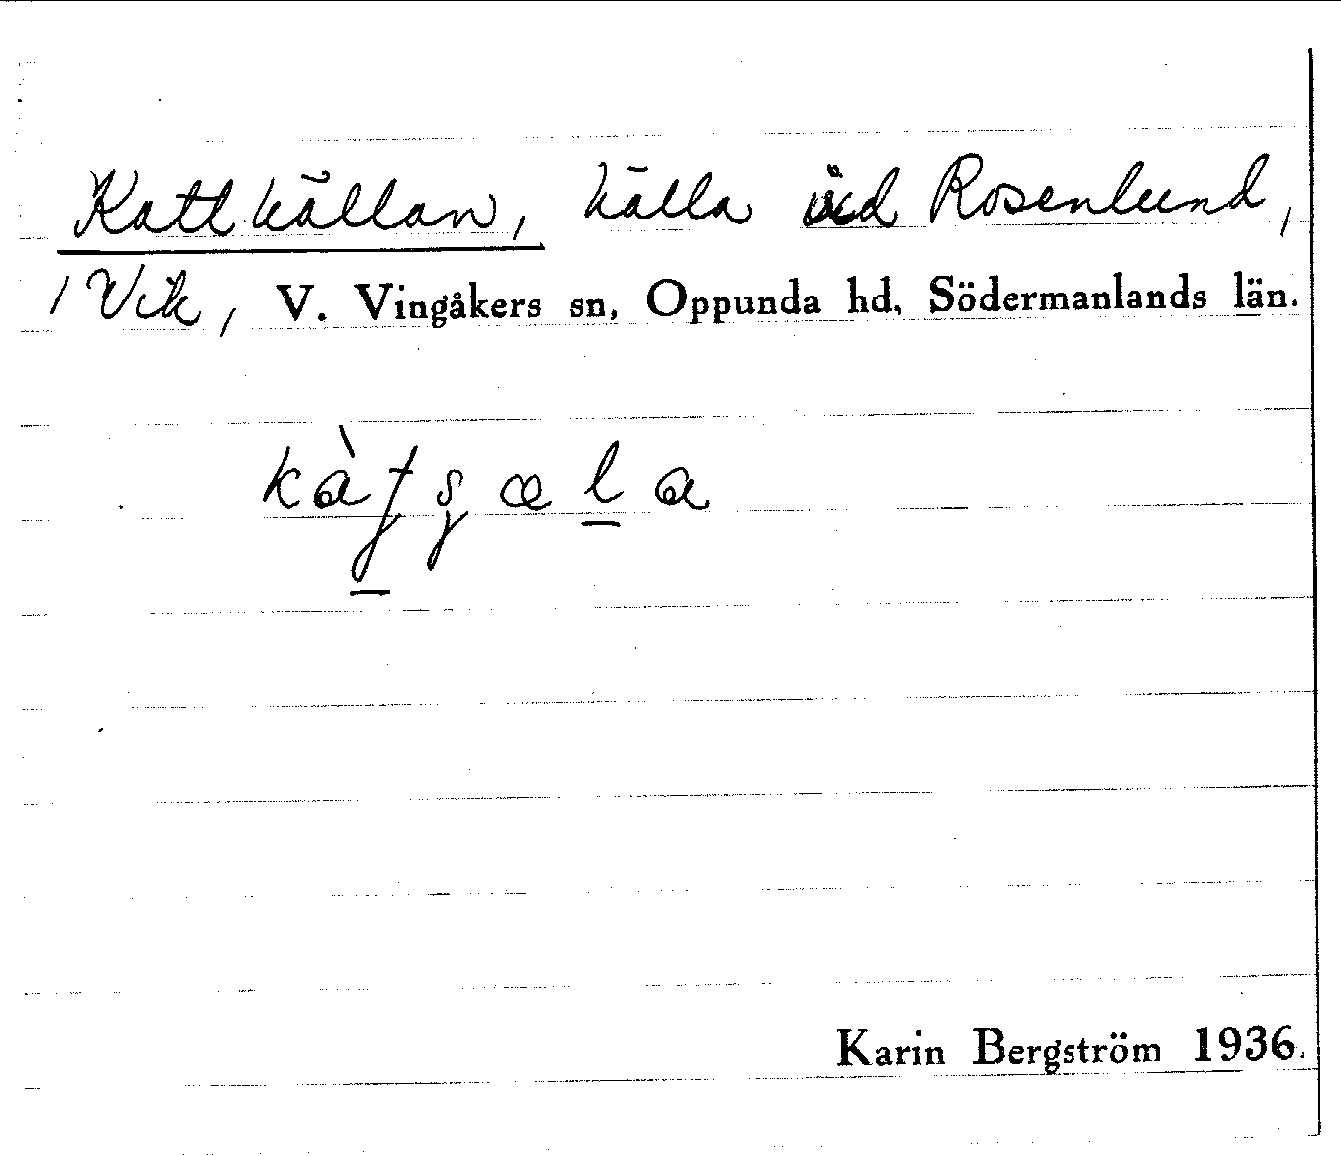 Kattkällan, källa vid Rosenlund,
/ Vik, V. Vingåkers sn, Oppunda hd, Södermanlands län.
Karin Bergström 1936.